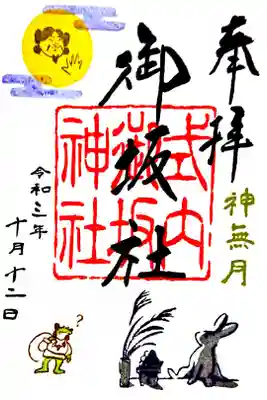 奉拝
神無月
御坂社
式内
御坂
神社
令和三年
十月十二日
?